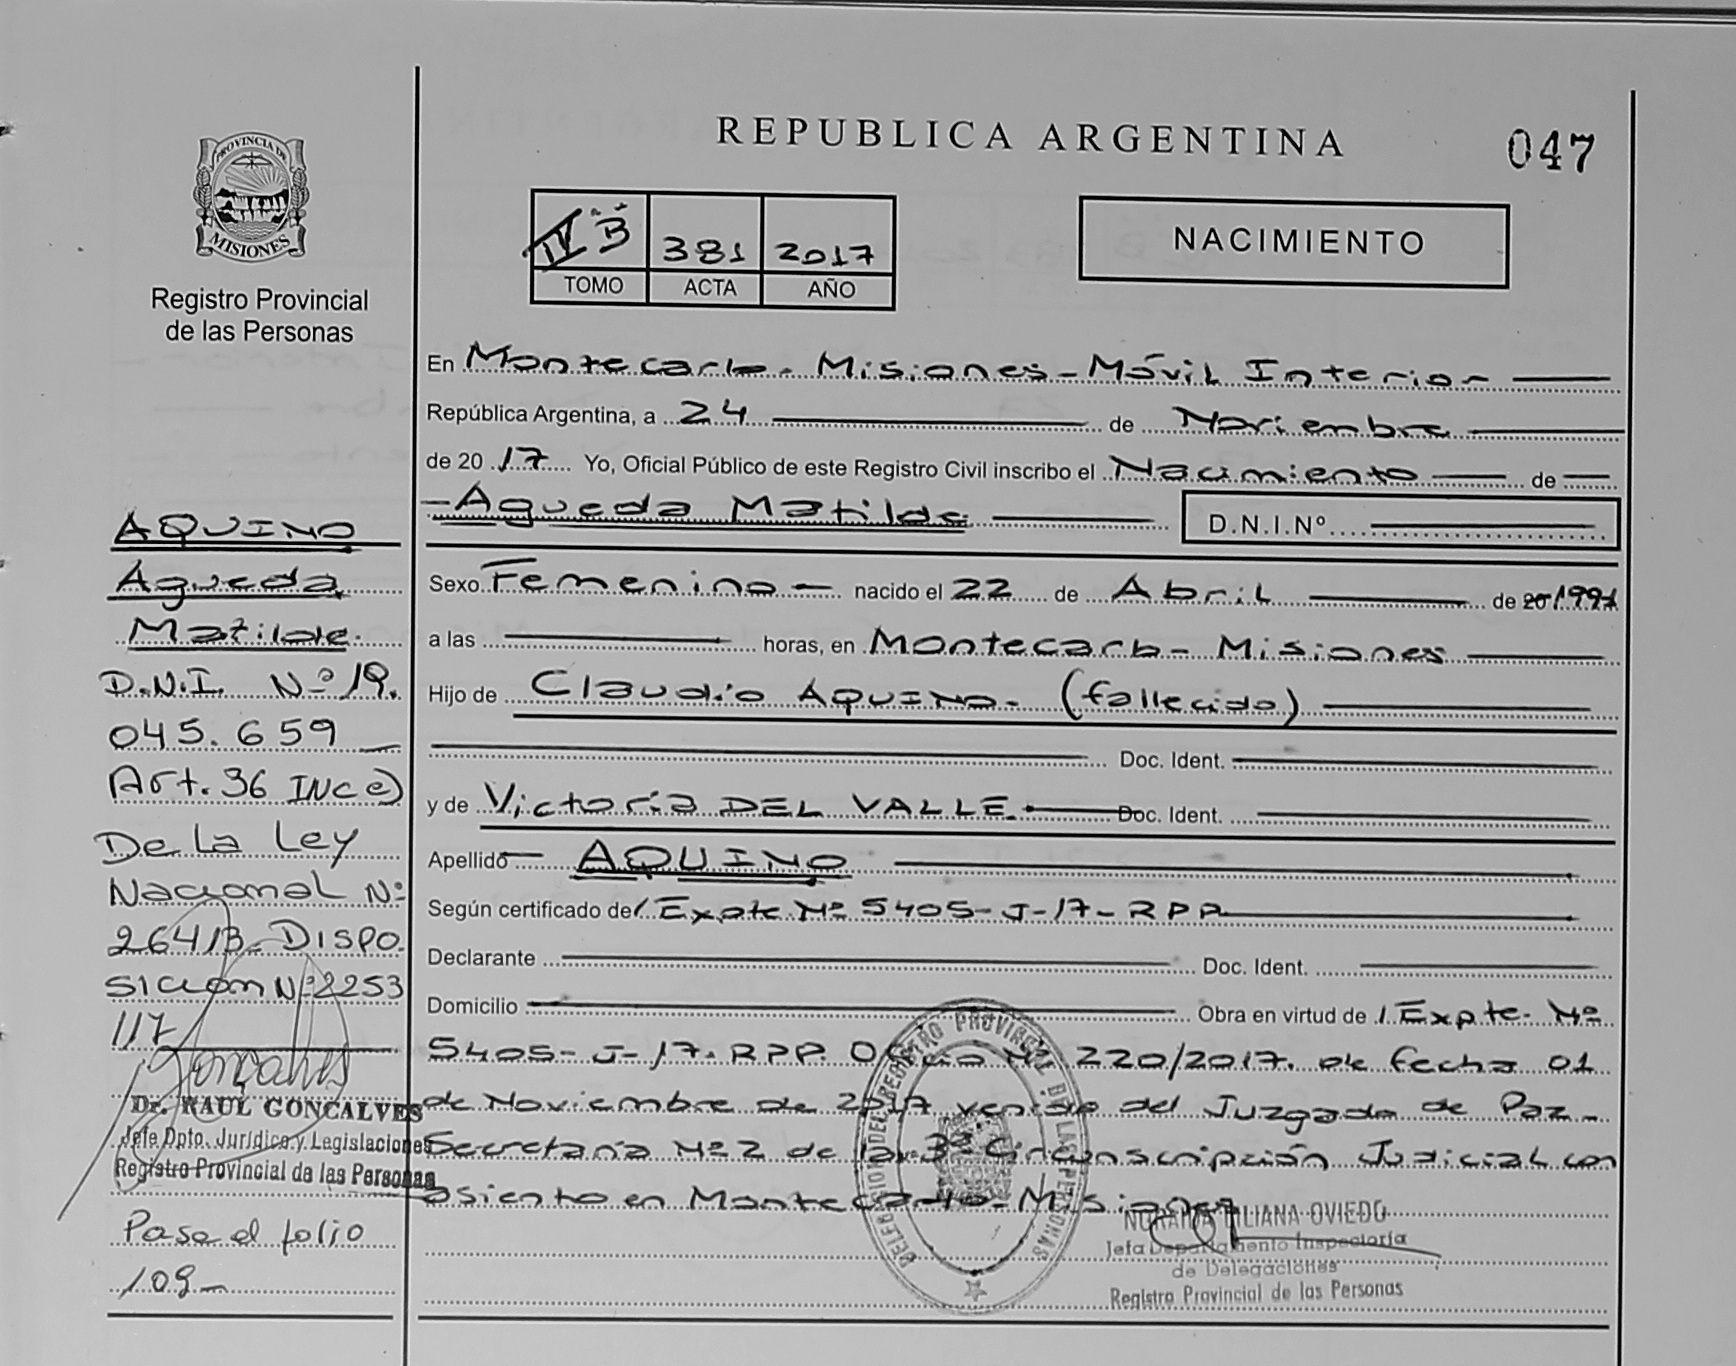 REPUBLICA ARGENTINA
047
PROVINCIA DE
MISIONES
Registro Provincial
de las Personas
IV B 381 2017
TOMO ACTA AÑO
NACIMIENTO
En Montecarlo - Misiones - Móvil Interior
República Argentina, a 24 de Noviembre
de 2017 Yo, Oficial Público de este Registro Civil inscribo el Nacimiento de
Agueda Matilde D.N.I.Nº
Sexo Femenino nacido el 22 de Abril de 20
a las horas, en Montecarlo - Misiones
Hijo de Claudio AQUINO - (fallecido)
Doc. Ident.
y de Victoria DEL VALLE Doc. Ident.
Apellido AQUINO
Según certificado de Expte Nº 5405-J-17-RPP
Declarante Doc. Ident.
Domicilio Obra en virtud de Expte. Nº
5405-J-17-RPP. Oficio Nº 220/2017. de fecha 01
de Noviembre de 2017 venido del Juzgado de Paz -
Secretaría Nº 2 de la 3ª Circunscripción Judicial con
asiento en Montecarlo - Misiones
DELEGACION DEL REGISTRO PROVINCIAL DE LAS PERSONAS
LILIANA OVIEDO
Jefa Departamento Inspectoría
de Delegaciones
Registro Provincial de las Personas
AQUINO
Agueda
Matilde.
D.N.I. Nº 19.
045.659
Art. 36 INC e)
De la Ley
Nacional Nº
26413- DISPO
SICIÓN Nº 2253
/17
Dr. RAUL GONCALVES
Jefe Dpto. Jurídico y Legislaciones
Registro Provincial de las Personas
Pase al folio
109